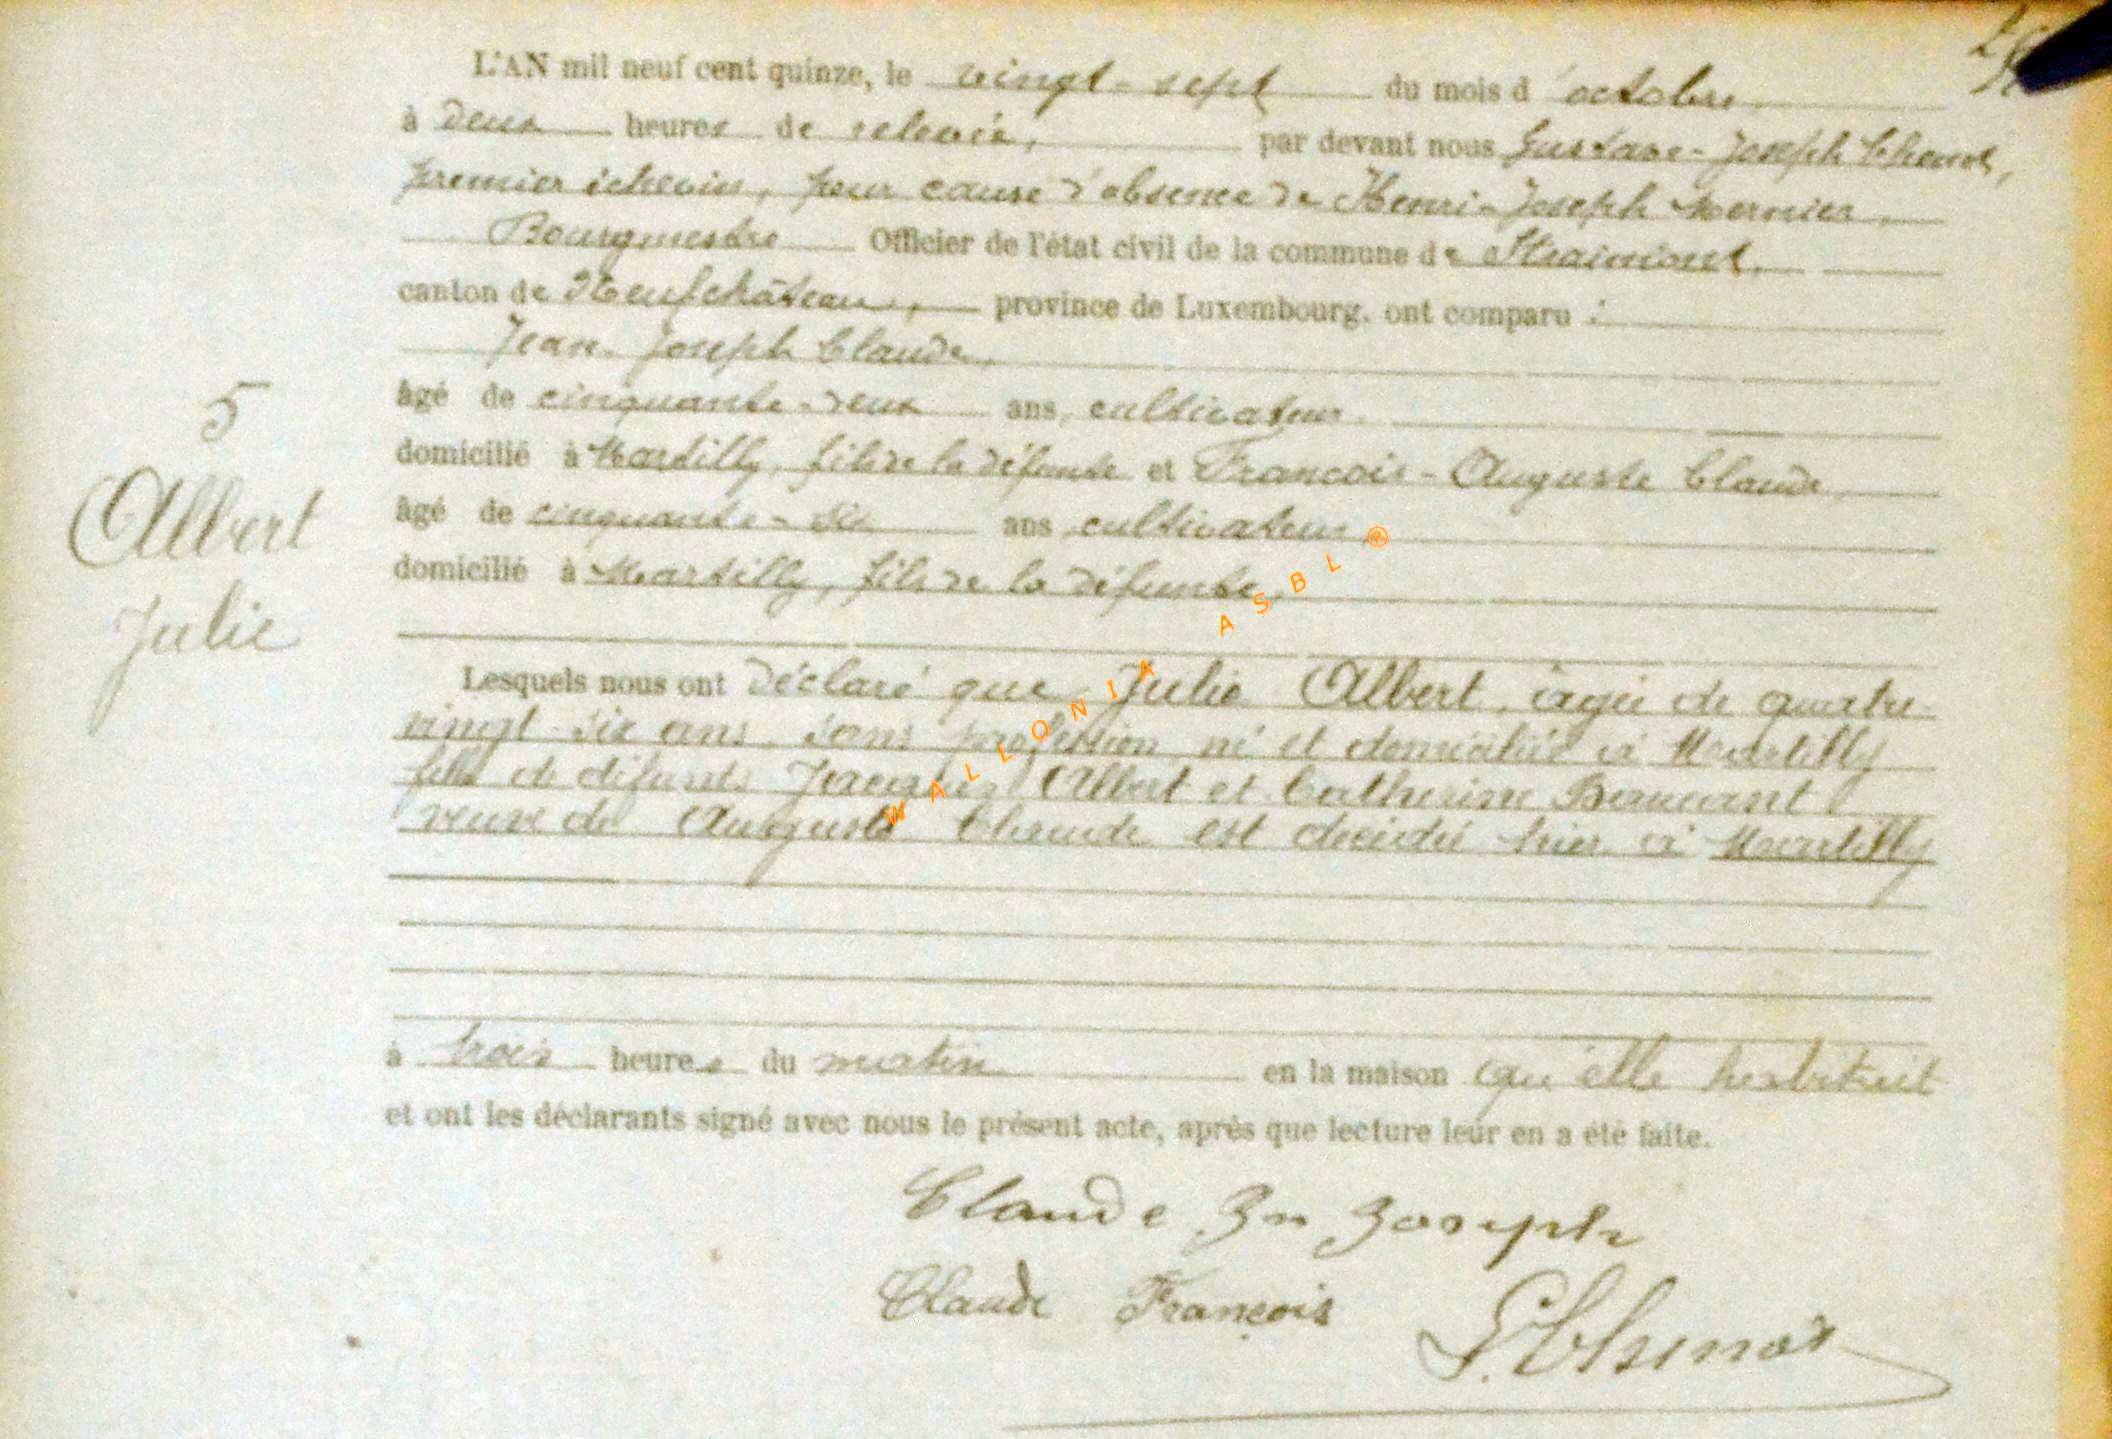 L'AN mil neuf cent quinze, le vingt-sept du mois d'octobre
à deux heures de relevée, par devant nous Gustave-Joseph
premier échevin, pour cause d'absence de Henri-Joseph Mernier,
Bourgmestre Officier de l'état civil de la commune de Straimont,
canton de Neufchâteau, province de Luxembourg, ont comparu :
Jean-Joseph Claude,
âgé de cinquante-deux ans, cultivateur
domicilié à Martilly, fils de la défunte et François-Auguste Claude,
5
âgé de cinquante-six ans cultivateur,
Albert
domicilié à Martilly, fils de la défunte,
Julie
Lesquels nous ont déclaré que Julie Albert, âgée de quatre
vingt-six ans, sans profession né et domiciliée à Martilly
fille de défunts Jacques Albert et Catherine
veuve de Auguste Claude est décédée hier à Martilly
à trois heures du matin en la maison qu'elle habitait
et ont les déclarants signé avec nous le présent acte, après que lecture leur en a été faite.
Claude Jn Joseph
Claude François
WALLONIA ASBL ®